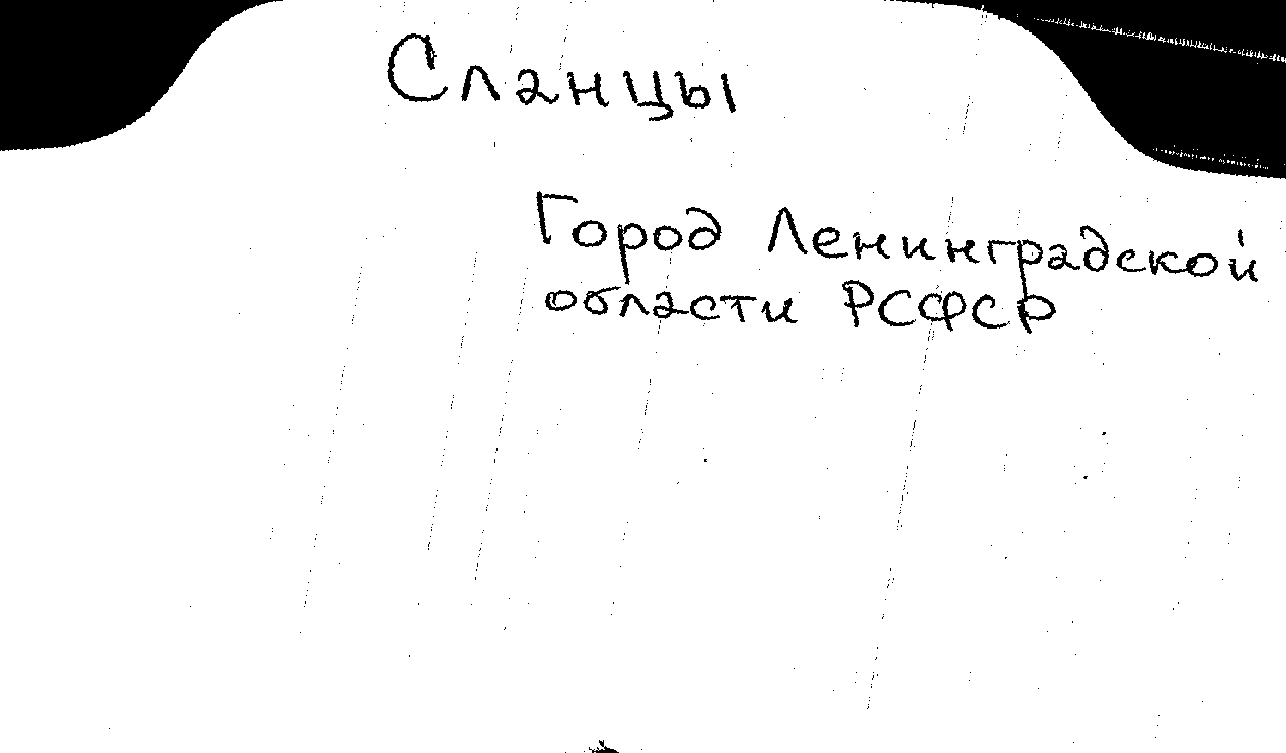 Сланцы
Город Ленинградской
области РСФСР